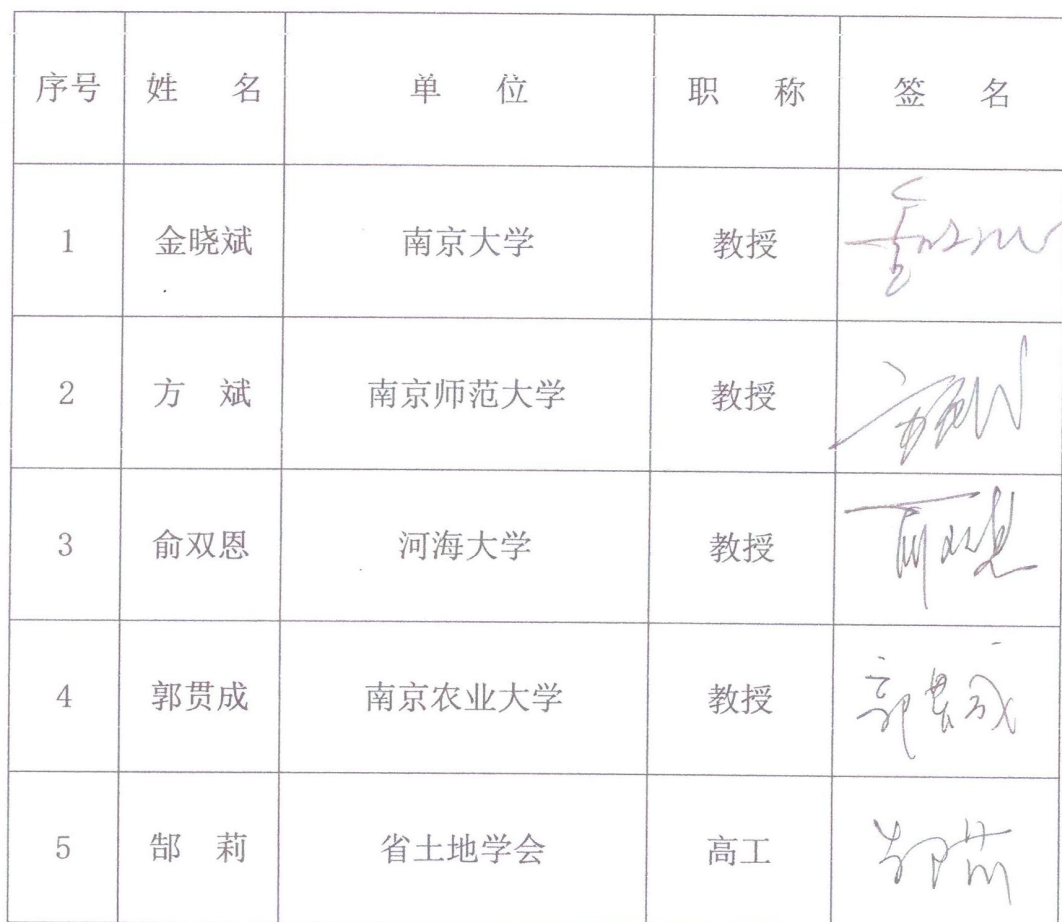 序号 姓 名 单 位 职 称 签 名
1 金晓斌 南京大学 教授 金晓斌
2 方 斌 南京师范大学 教授 方斌
3 俞双恩 河海大学 教授 俞双恩
4 郭贯成 南京农业大学 教授 郭贯成
5 郜 莉 省土地学会 高工 郜莉